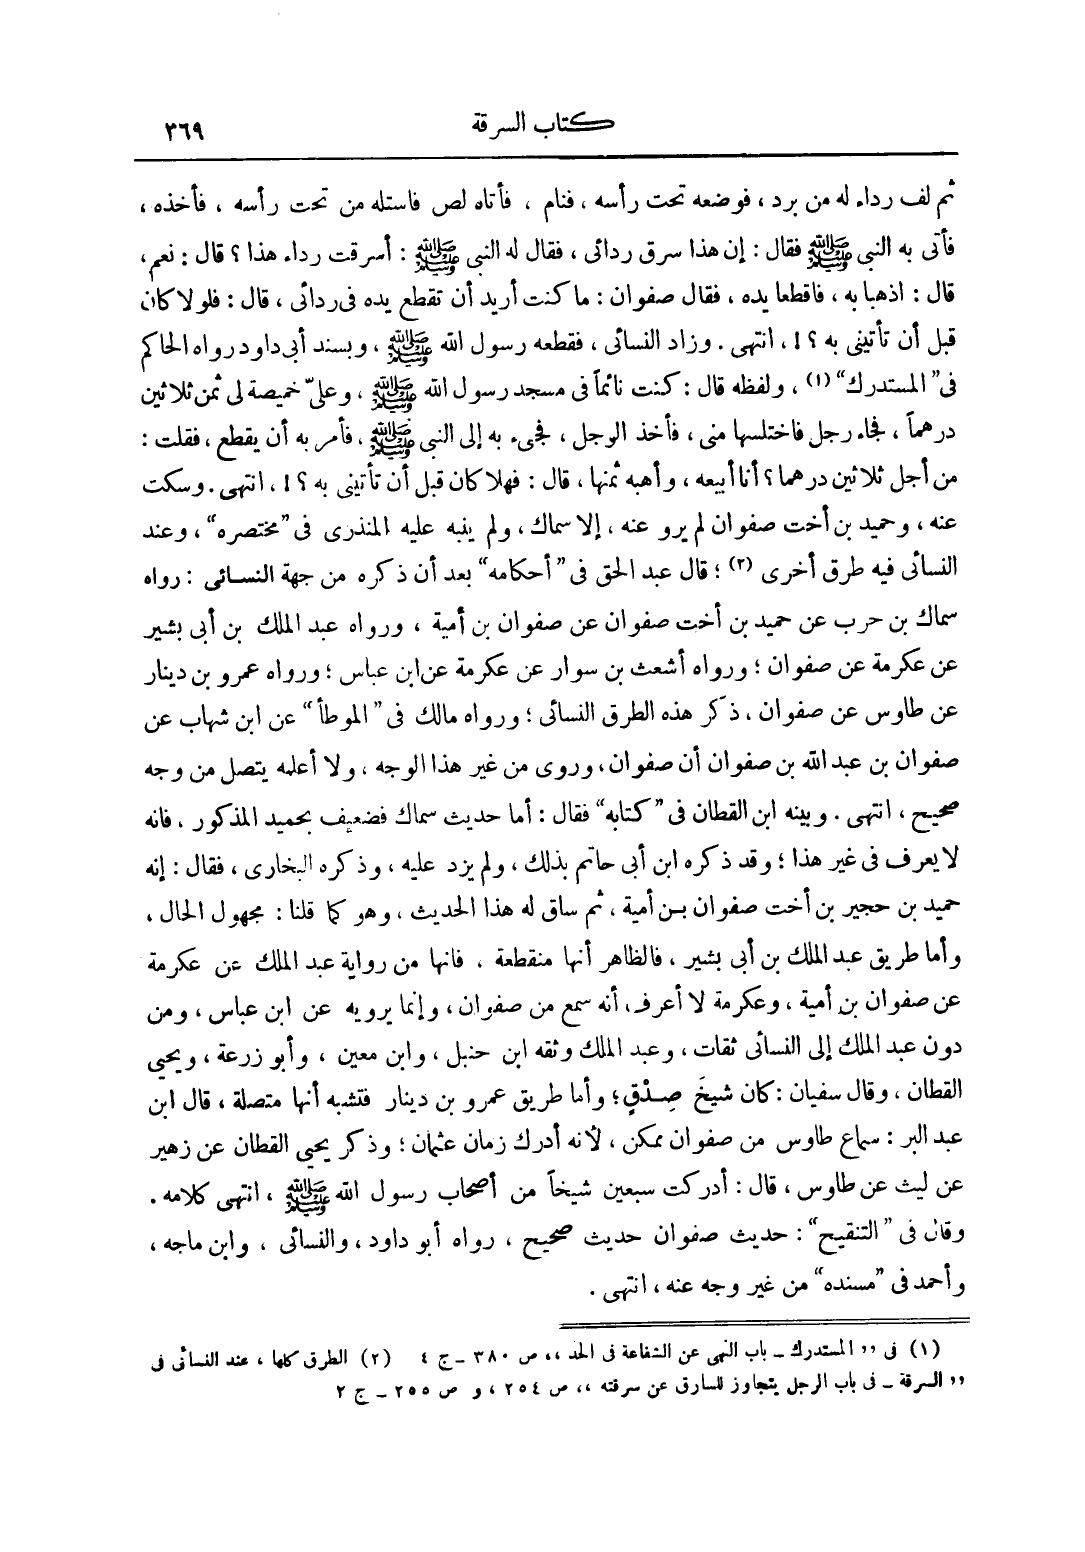 كتاب السرقة
٣٦٩
ثم لف رداء له من برد ، فوضعه تحت رأسه ، فنام ، فأتاه لص فاستله من تحت رأسه ، فأخذه ،
فأتى به النبي ﷺ فقال : إن هذا سرق ردائى ، فقال له النبي ﷺ : أسرقت رداء هذا ؟ قال : نعم ،
قال : اذهبا به ، فاقطعا يده ، فقال صفوان : ما كنت أريد أن تقطع يده فى ردائى ، قال : فلو لا كان
قبل أن تأتينى به ؟ ! ، انتهى . وزاد النسائى ، فقطعه رسول الله ﷺ ، وبسند أبى داود رواه الحاكم
فى "المستدرك" (١) ، ولفظه قال : كنت نائماً فى مسجد رسول الله ﷺ ، وعلىّ خميصة لى ثمن ثلاثين
درهماً ، فجاء رجل فاختلسها منى ، فأخذ الرجل ، فجىء به إلى النبى ﷺ ، فأمر به أن يقطع ، فقلت :
من أجل ثلاثين درهما ؟ أنا أبيعه ، وأهبه ثمنها ، قال : فهلا كان قبل أن تأتينى به ؟ ! ، انتهى . وسكت
عنه ، وحميد بن أخت صفوان لم يرو عنه ، إلا سماك ، ولم ينبه عليه المنذرى فى "مختصره" ، وعند
النسائى فيه طرق أخرى (٢) ؛ قال عبد الحق فى "أحكامه" بعد أن ذكره من جهة النسائى : رواه
سماك بن حرب عن حميد بن أخت صفوان عن صفوان بن أمية ، ورواه عبد الملك بن أبى بشير
عن عكرمة عن صفوان ؛ ورواه أشعث بن سوار عن عكرمة عن ابن عباس ؛ ورواه عمرو بن دينار
عن طاوس عن صفوان ، ذكر هذه الطرق النسائى ؛ ورواه مالك فى "الموطأ" عن ابن شهاب عن
صفوان بن عبد الله بن صفوان أن صفوان ، وروى من غير هذا الوجه ، ولا أعلمه يتصل من وجه
صحيح ، انتهى . وبينه ابن القطان فى "كتابه" فقال : أما حديث سماك فضعيف بحميد المذكور ، فانه
لا يعرف فى غير هذا ؛ وقد ذكره ابن أبى حاتم بذلك ، ولم يزد عليه ، وذكره البخارى ، فقال : إنه
حميد بن حجير بن أخت صفوان بن أمية ، ثم ساق له هذا الحديث ، وهو كما قلنا : مجهول الحال ،
وأما طريق عبد الملك بن أبى بشير ، فالظاهر أنها منقطعة ، فانها من رواية عبد الملك عن عكرمة
عن صفوان بن أمية ، وعكرمة لا أعرف ، أنه سمع من صفوان ، وإنما يرويه عن ابن عباس ، ومن
دون عبد الملك إلى النسائى ثقات ، وعبد الملك وثقه ابن حنبل ، وابن معين ، وأبو زرعة ، ويحيى
القطان ، وقال سفيان : كان شيخَ صِدْقٍ ؛ وأما طريق عمرو بن دينار فتشبه أنها متصلة ، قال ابن
عبد البر : سماع طاوس من صفوان ممكن ، لأنه أدرك زمان عثمان ؛ وذكر يحيى القطان عن زهير
عن ليث عن طاوس ، قال : أدركت سبعين شيخاً من أصحاب رسول الله ﷺ ، انتهى كلامه .
وقال فى "التنقيح" : حديث صفوان حديث صحيح ، رواه أبو داود ، والنسائى ، وابن ماجه ،
وأحمد فى "مسنده" من غير وجه عنه ، انتهى .
(١) فى ,, المستدرك ـ باب النهى عن الشفاعة فى الحد ،، ص ٣٨٠ ـ ج ٤ (٢) الطرق كلها ، عند النسائى فى
,, السرقة ـ فى باب الرجل يتجاوز للسارق عن سرقته ،، ص ٢٥٤ ، و ص ٢٥٥ ـ ج ٢